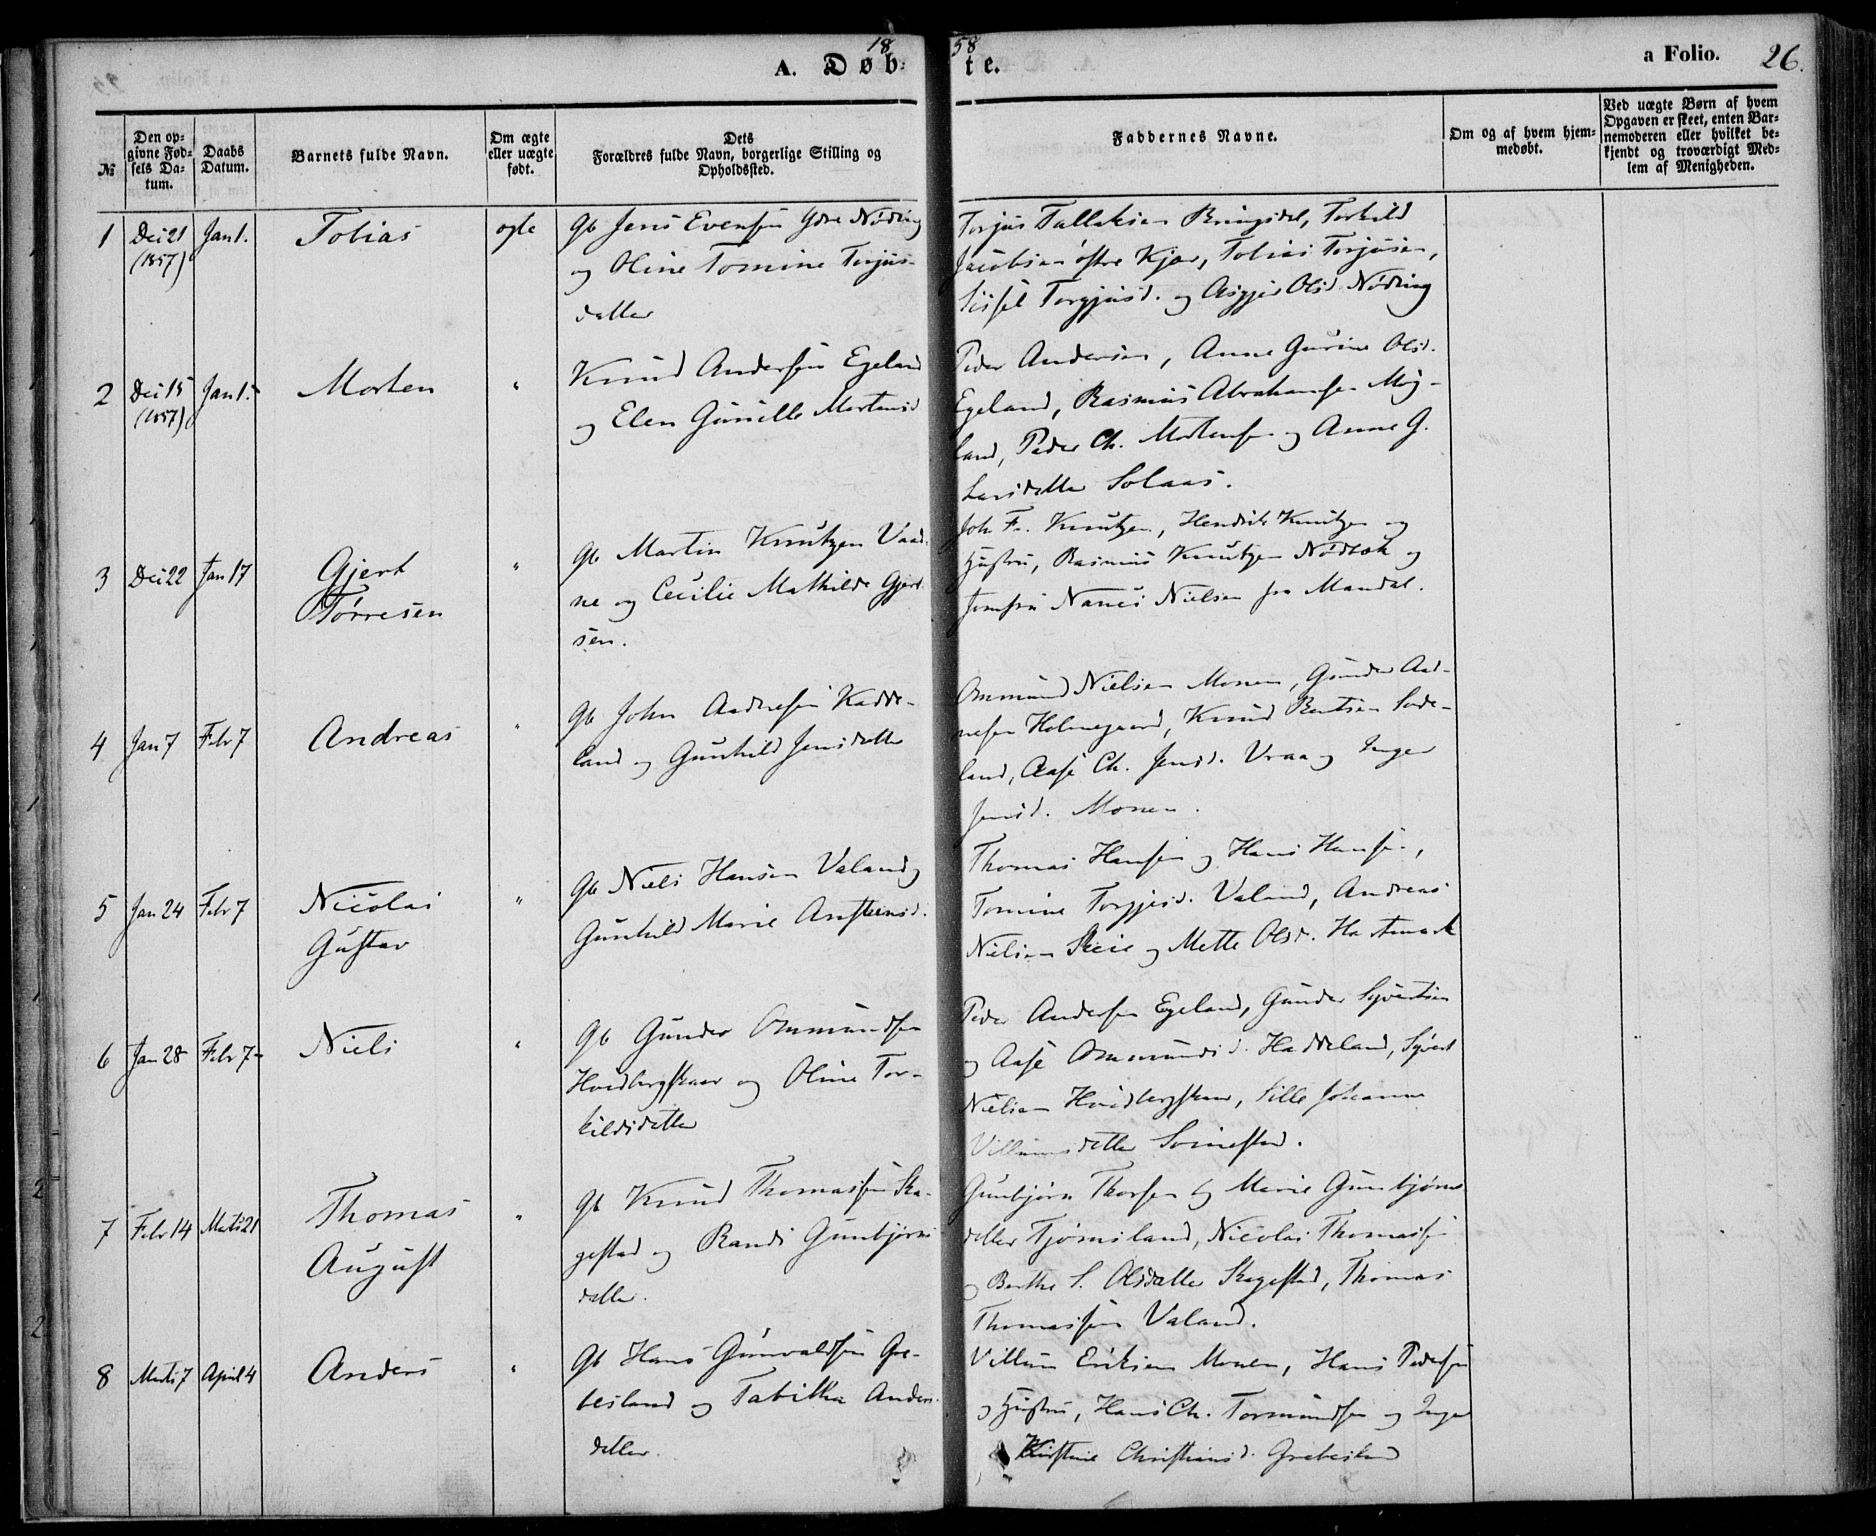 1858
A. Døbte.
a Folio. 26.
№
Den opgivne Fødsels Datum.
Daabs Datum.
Barnets fulde Navn.
Om ægte eller uægte født.
Dets Forældres fulde Navn, borgerlige Stilling og Opholdssted.
Faddernes Navne.
Om og af hvem hjemmedøbt.
Ved uægte Børn af hvem Opgaven er skeet, enten Barnemoderen eller hvilket bekjendt og troværdigt Medlem af Menigheden.
1 Dec 21 (1857) Jan 1. Tobias ægte
Gb Jens Evensen Ydre Nøding
og Oline Tomine Torjus-
datter
Torjus Tallaksen Ringsdal, Torkild
Jacobsen østre Kjær, Tobias Torjusen,
Sissel Torgjusd. og Asgjer Olsd. Nøding
2 Dec 15 (1857) Jan 1. Morten "
Knud Andersen Egeland
og Elen Gunille Mortensd
Peder Andersen, Anne Gurine Olsd.
Egeland, Rasmus Abrahamsen Møg-
land, Peder Ch. Mortensen og Anne G.
Larsdatter Solaas.
3 Dec 22 Jan 17 Gjert Tørresen "
Gb Martin Knutzen Vaad-
ne og Cecilie Mathilde Gjert-
sen.
Joh F. Knutzen, Hendrik Knutzen og
Hustru, Rasmus Knutzen og
Jomfru Nanci Nielsen fra Mandal.
4 Jan 7 Febr 7 Andreas "
Gb John Aadnesen Hadde-
land og Gunhild Jensdatter
Ommund Nielsen Monen, Gunder Aad-
nesen Holmegaard, Knud Bentsen
land, Aase Ch. Jensd. Vraa og Inger
Jensd. Monen.
5 Jan 24 Febr 7 Nicolai Gustav "
Gb Niels Hansen Valand og
Gunhild Marie Anstensd.
Thomas Hansen og Hans Hansen,
Tomine Torgjesd. Valand, Andreas
Nielsen Skeie og Mette Olsd. Hartmark
6 Jan 28 Febr 7 Niels "
Gb Gunder Ommundsen
Hvidbergskaar og Oline Tor-
kildsdatter
Peder Andersen Egeland, Gunder Syvertsen
og Aase Ommundsd. Haddeland, Syvert
Nielsen Hvidbergskaar, Sille Johanne
Villumsdatter
7 Febr 14 Marts 21 Thomas August "
Gb Knud Thomassen Ska-
gestad og Randi Gunbjørns
datter.
Gunbjørn Thorsen og Marie Gunbjørns
datter Tjomsland, Nicolai Thomassen
og Berthe S. Olsdatter Skagestad, Thomas
Thomassen Valand.
8 Marts 7 April 4 Anders "
Gb Hans Gunvaldsen Gre-
besland og Tabitha Anders
datter.
Villum Eriksen Monen, Hans Pedersen
og Hustru, Hans Ch. Tormundsen og Inger
Kirstine Christiansd. Grebesland